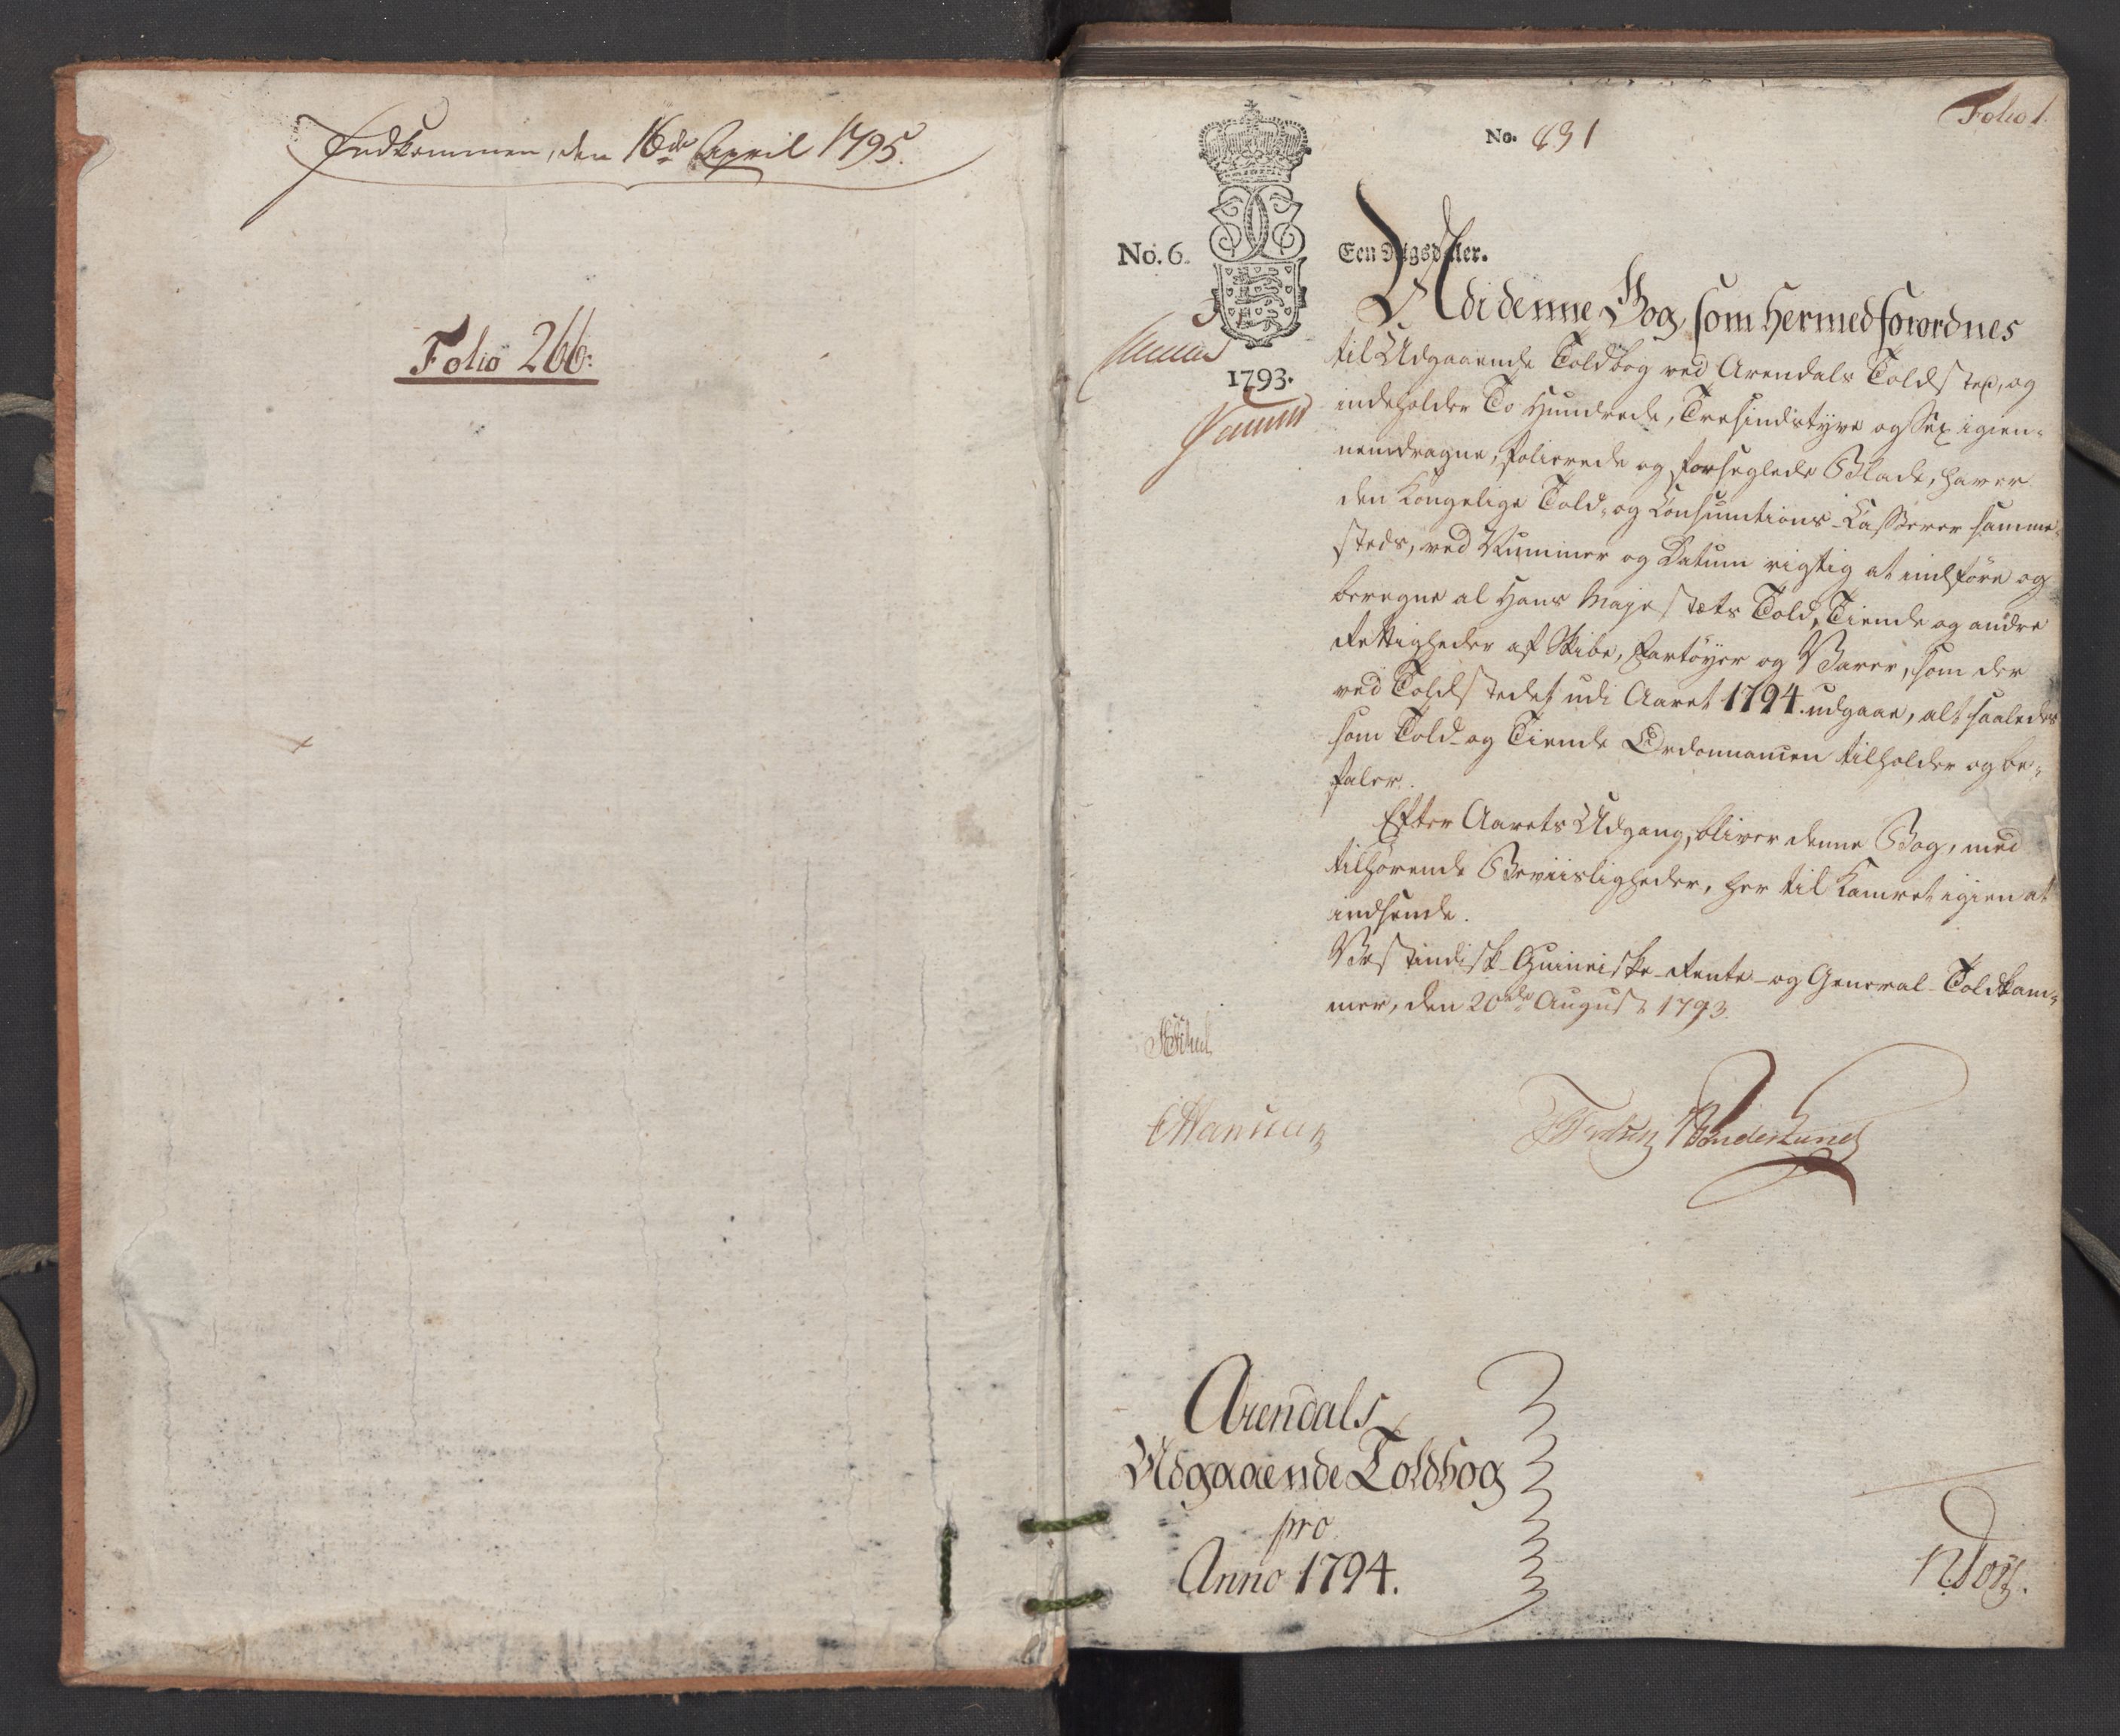 Indkommen, den 16de April 1795.
Folio 266:
Folio 1.
No. 831
No. 6.
Een Rigsdaler.
1793.
Udi denne Bog, som hermed forordnes
til Udgaaende Toldbog ved Arendals Toldsted, og
indeholder To Hundrede, Tresindstyve og Sex igien-
nemdragne, folierede og forseglede Blade, haver
den Kongelige Told- og Consumtions-Casserer samme-
steds, ved Nummer og Datum rigtig at indføre og
beregne al Hans Majestæts Told, Tiende og andre
Rettigheder af Skibe, Fartöyer og Varer, som der
ved Toldstedet udi Aaret 1794. udgaae, alt saaledes
som Told- og Tiende Ordonnancen tilholder og be-
faler.
Efter Aarets Udgang, bliver denne Bog, med
tilhörende Beviisligheder, her til Kamret igien at
indsende.
Vestindisk-Guineiske-Rente- og General-Toldkam-
mer, den 20de August 1793.
Arendals
Udgaaende Toldbog
pro
Anno 1794.